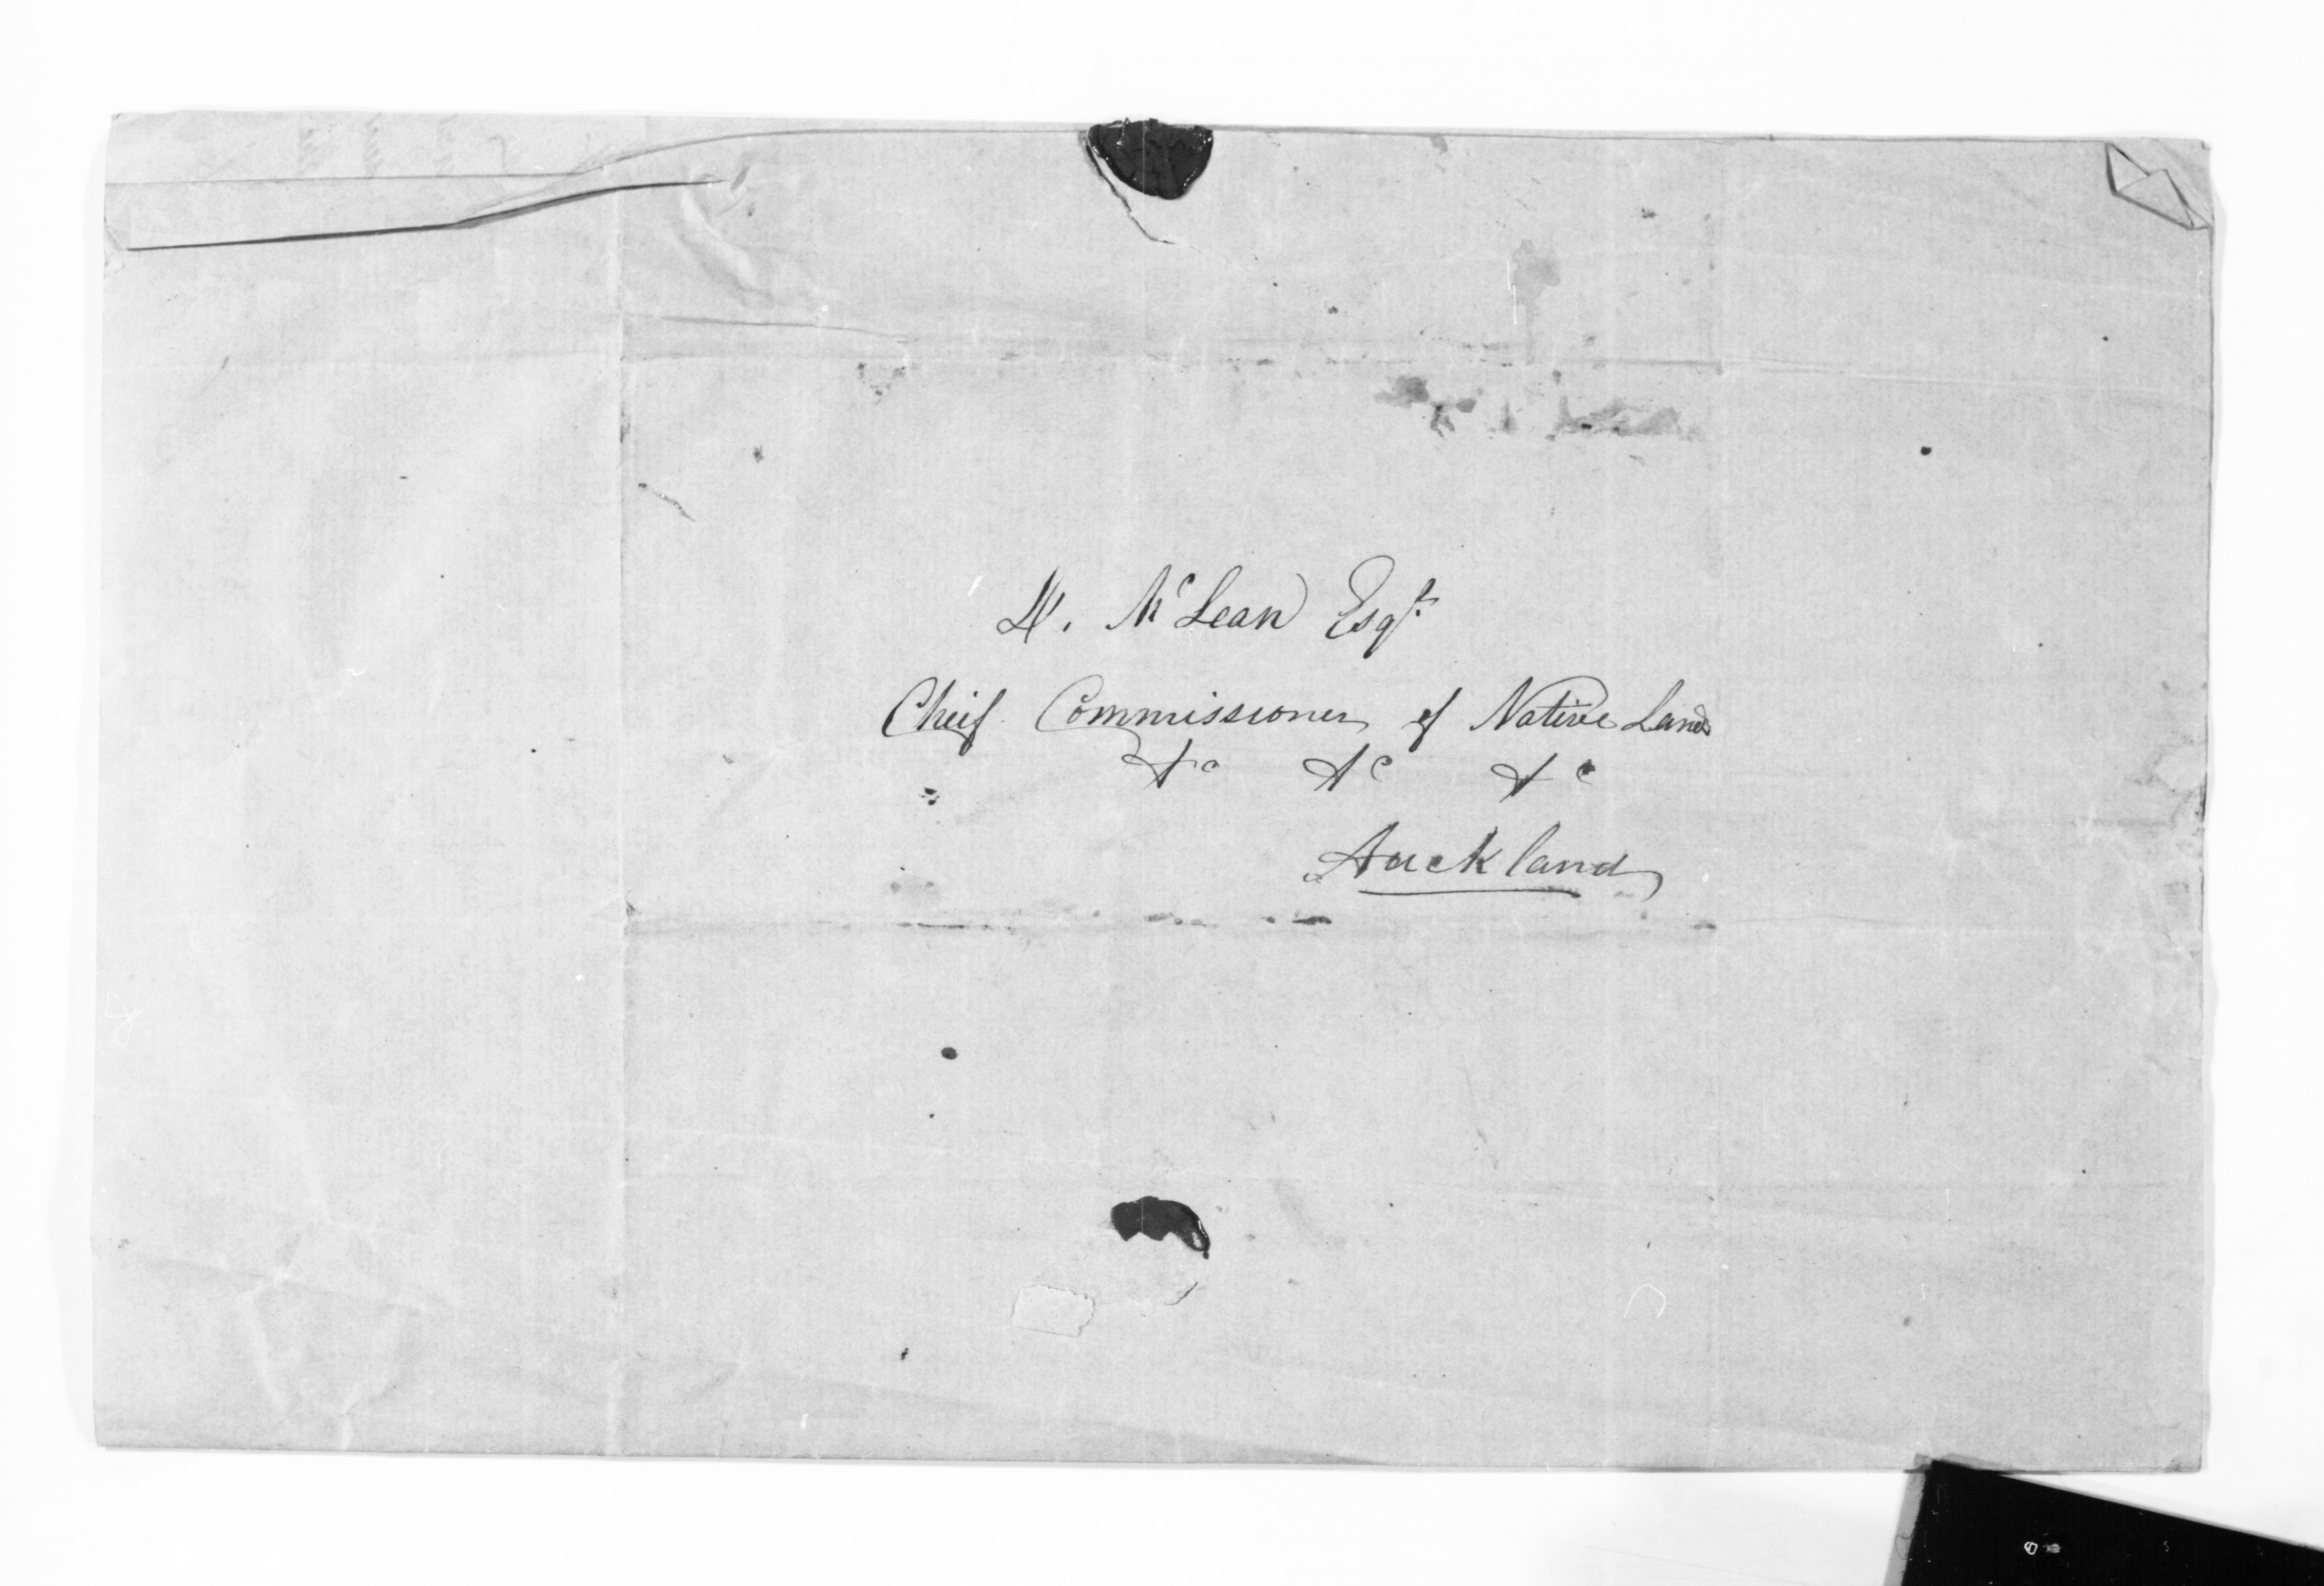 D. McLean Esqr.
Cheif Commissioner of Native Lands
&c &c &c
Auckland